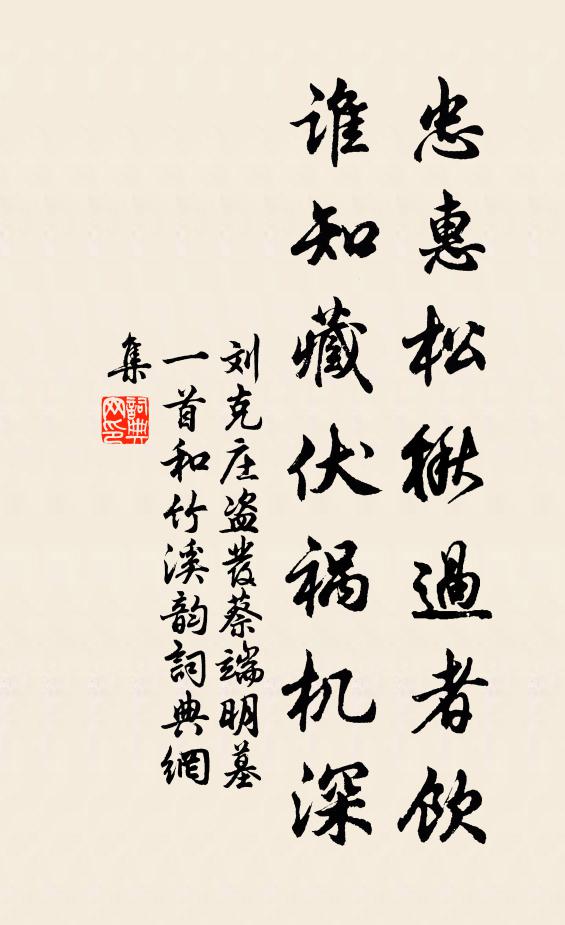 忠惠松楸過者钦
谁知藏伏祸机深
刘克庄盗發蔡端明墓
一首和竹溪韵詞典網
集
詞典
网印